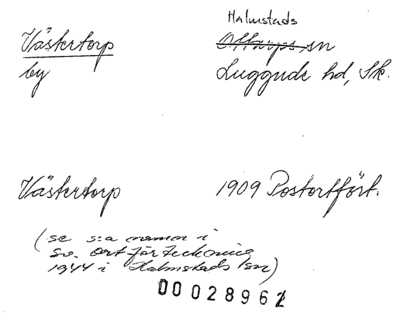 Halmstads
Västertorp Ottarps sn
by Luggude hd, Sk.
Västertorp 1909 Postortfört.
(se s:a namn i
Sv. Ortförteckning
1944 i Halmstads sn)
00028962